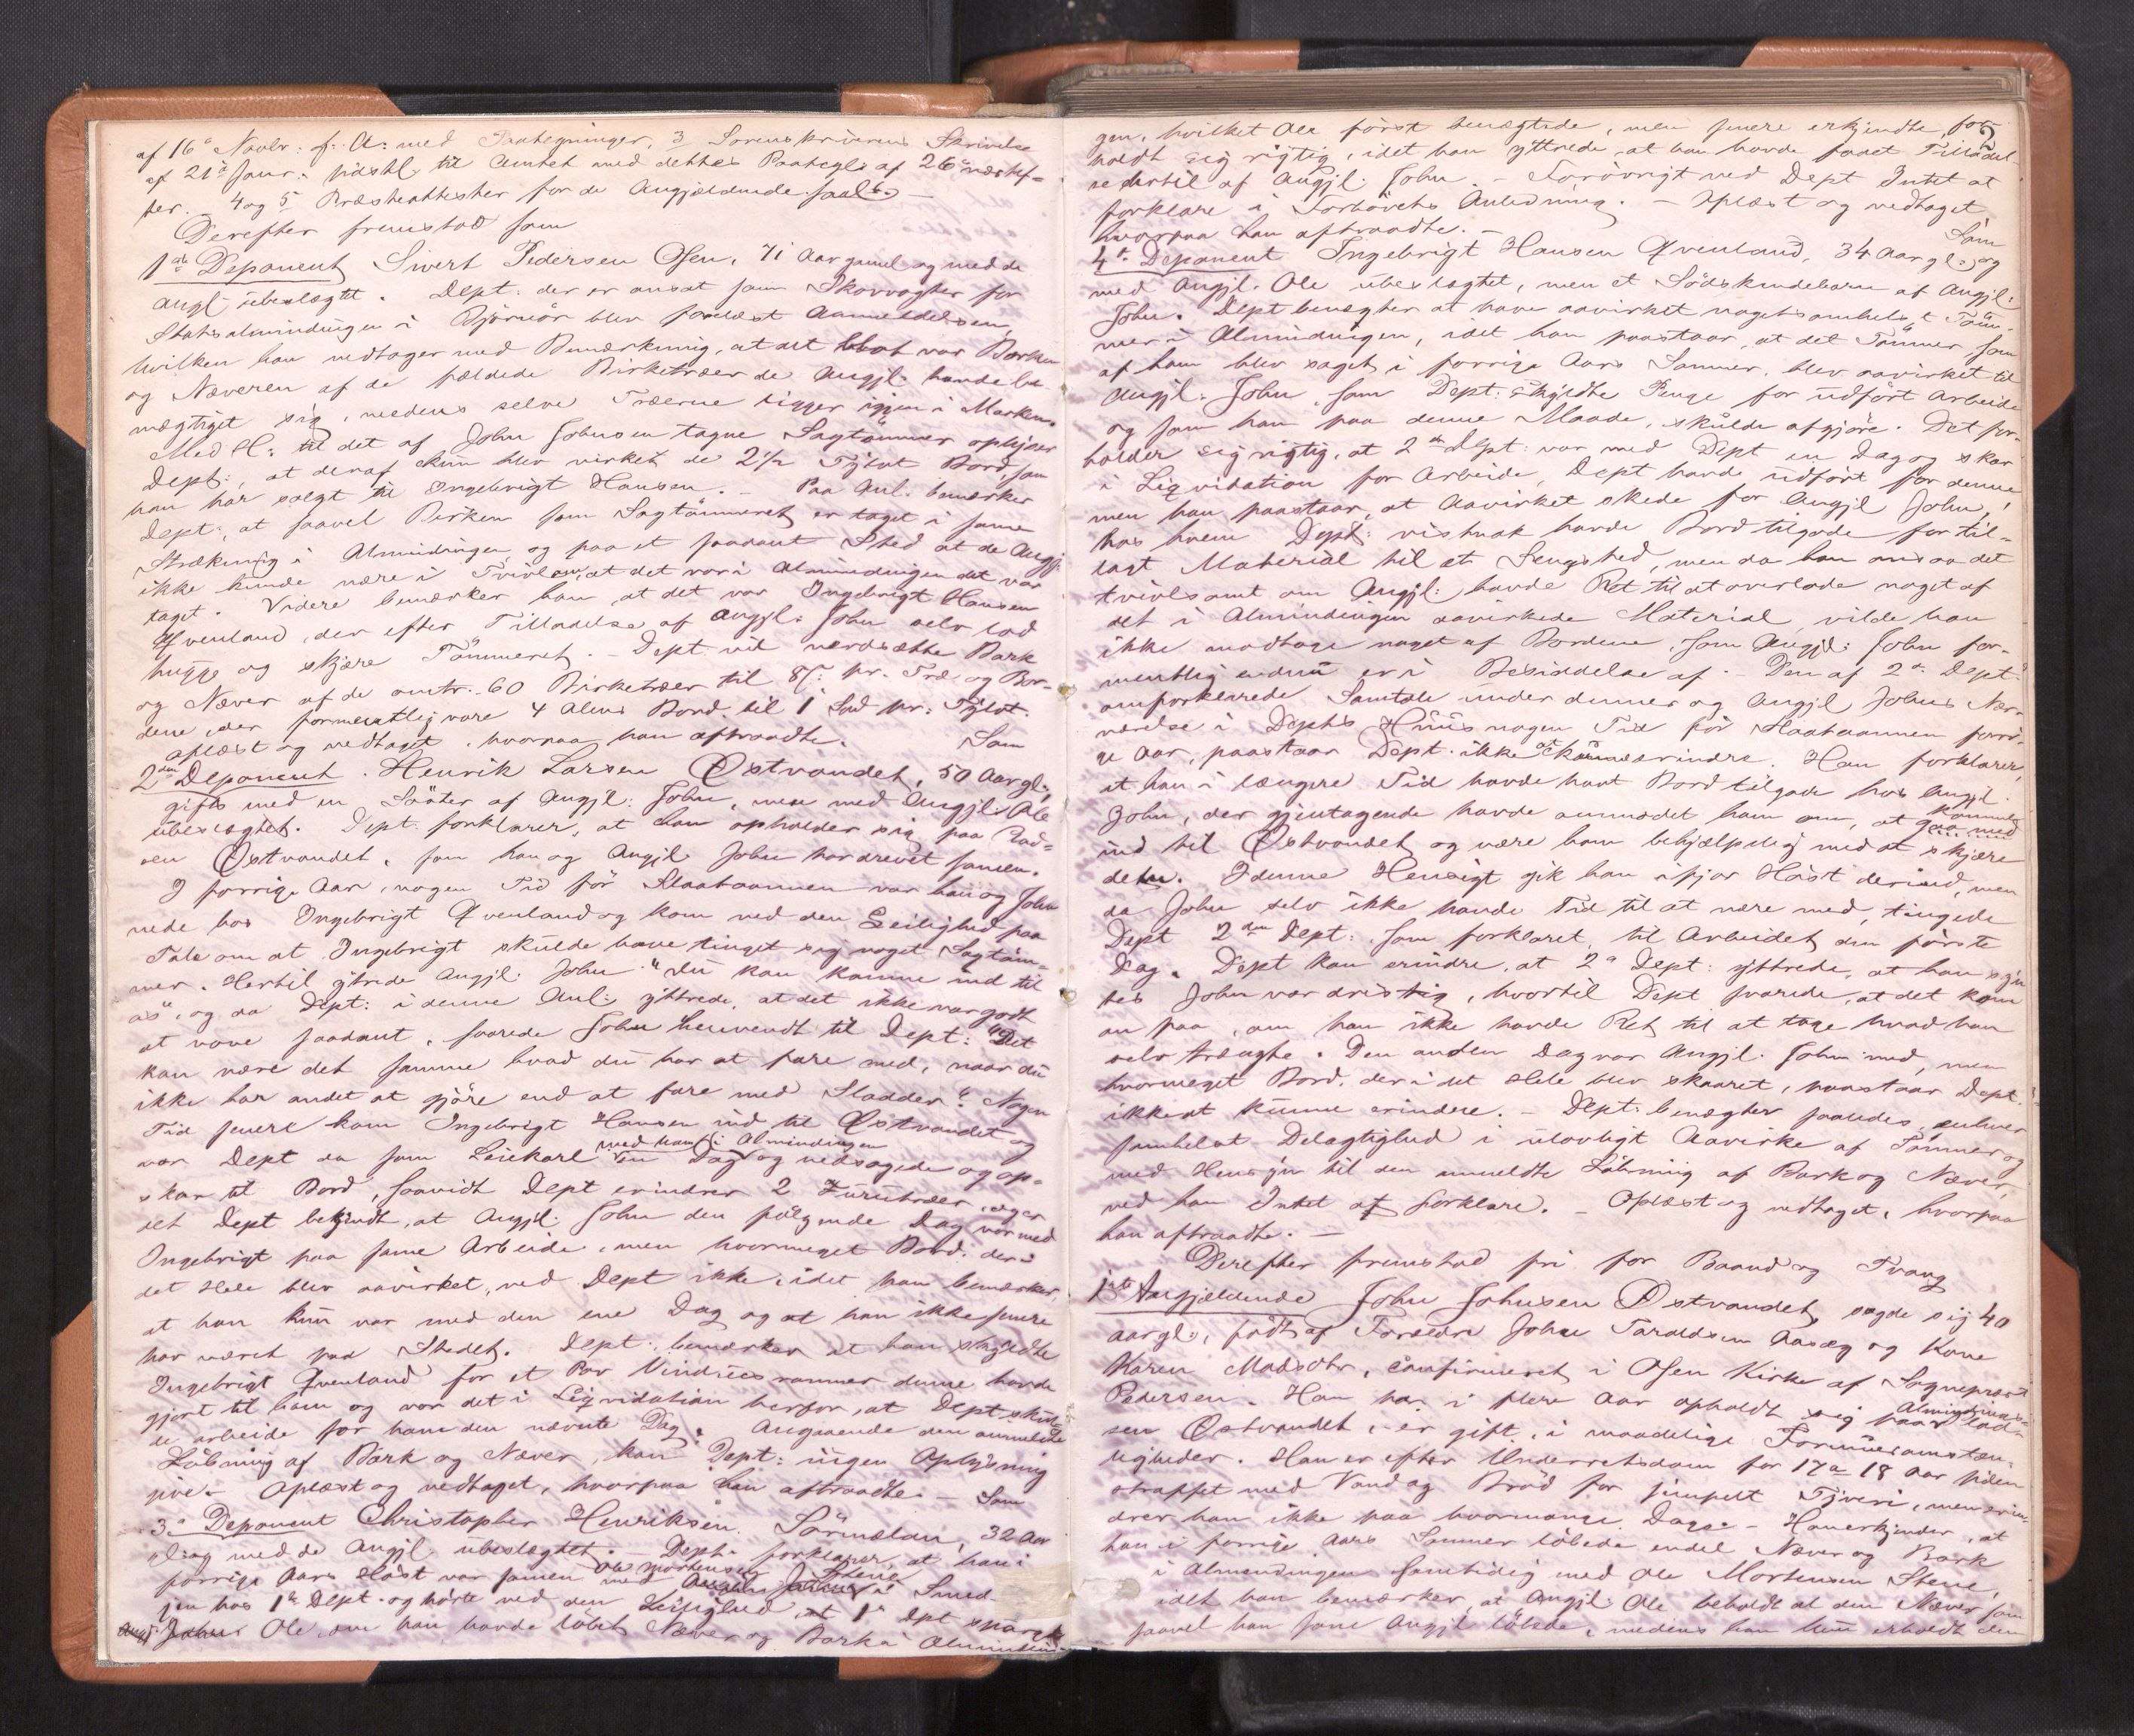 af 16de Novbr: f. A: med Paategninger, 3 Sorenskriverens Skrivelse
af 21de Janr: sidstl. til Amtet med dettes Paategl. af 26de næstef-
ter. 4 og 5 Præsteattester for de Angjældende saal. –
Derefter fremstod som
1ste Deponent Sivert Pedersen Osen, 71 Aar gamel og med de
Angl. ubeslægtet. Dept: der er ansat som Skovvogter for
Statsalmindingen i Bjørnør blev forelæst Anmeldelsen,
hvilken han vedtager med Bemærkning, at det blot var Barken
og Næveren af de fældede Birketræer de Angjl. havde be-
mægtiget sig, medens selve Træerne ligger igjen i Marken.
Med H: til det af John Johnsen tagne Sagtømmer oplyser
Dept:, at deraf kun blev virket de 2 1/2 Tylvt Bord, som
han har solgt til Ingebrigt Hansen. – Paa Anl. bemærker
Dept:, at saavel Birken som Sagtømmeret er taget i samme
Strækning i Almindingen, og paa et saadant Sted at de Angjl
ikke kunde være i Tvivl om, at det var i Almindingen det var
taget. Videre bemærker han, at det var Ingebrigt Hansen
Qvenland, der efter Tilladelse af Angjl. John selv lod
hugge og skjære Tømmeret. – Dept. vil værdsætte Bark
og Næver af de omtr. 60 Birketræer til 8 s. pr. Træ og Bor-
dene, der formentlig vare 4 Alens Bord, til 1 Spd pr. Tylvt.
Oplæst og vedtaget, hvorpaa han aftraadte. Som
2den Deponent. Henrik Larsen Østvandet, 50 Aar gl.,
gift med en Søster af Angjl: John, men med Angjl. Ole
ubeslægtet. Dept. forklarer, at han opholder sig paa Plad-
sen Østvandet, som han og Angjl. John har drevet sammen.
I forrige Aar, nogen Tid før Slaataannen var han og John
nede hos Ingebrigt Qvenland og kom ved den Leilighed paa
Tale om at Ingebrigt skulde have tinget sig noget Sagtøm-
mer. Hertil ytrede Angjl. John: "Du kan komme ind til
os", og da Dept: i denne Anl: yttrede, at det ikke var godt
at vove saadant, svarede John henvendt til Dept: "Det
kan være det samme hvad du har at fare med, naar du
ikke har andet at gjøre end at fare med Sladder". Nogen
Tid senere kom Ingebrigt Hansen ind til Østvandet og
var Dept da som Leiekarl med ham i Almindingen en Dag og nedsagede og op-
skar til Bord, saavidt Dept erindrer 2 Furutræer,
det Dept bekjendt, at Angjl. John den følgende Dag var med
Ingebrigt paa samme Arbeide, men hvormeget Bord, der i
det Hele blev avirket, ved Dept ikke, idet han bemærker,
at han kun var med den ene Dag og at han ikke senere
har været paa Stedet. Dept: bemærker at han skyldte
Ingebrigt Qvenland for et Par Vinduesrammer denne havde
gjort til ham og var det i Liqvidation herfor, at Dept skul-
de arbeide for ham den nævnte Dag. Angaaende den anmeldte
Løbning af Bark og Næver, kan Dept: ingen Oplysning
give. – Oplæst og vedtaget, hvorpaa han aftraadte. – Som
3die Deponent Christopher Henriksen Sørmelan, 32 Aar
gl og med de Angjl. ubeslægtet. – Dept. forklarer, at han i
forrige Aars Høst var sammen med Ole Mortensen Stene i Smed-
jen hos 1ste Dept. og hørte ved den Leilighed, at 1ste Dpt spurgte
Angj. Ole, om han havde løbet Næver og Bark i Almindin-
2
gen, hvilket Ole først benægtede, men senere erkjendte, for-
holdt sig rigtig, idet han yttrede, at han havde faaet Tilladel-
se dertil af Angjl. John. – Forøvrigt ved Dept Intet at
forklare i Forhørets Anledning. – Oplæst og vedtaget
hvorpaa han aftraadte. – Som
4de Deponent Ingebrigt Hansen Qvenland, 34 Aar gl. og
med Angjl. Ole ubeslægtet, men et Sødskendebarn af Angjl:
John. Dept benægter at have aavirket nogetsomhelst Tøm-
mer i Almindingen, idet han paastaar, at det Tømmer som
af ham blev saget i forrige Aars Sommer, blev aavirket til
Angjl. John, som Dept: skyldte Penge for udført Arbeide
og som han paa denne Maade, skulde afgjøre. Det for-
holder sig rigtig, at 2den Dept: var med Dept en Dag og skar
i Liqvidation for Arbeide, Dept havde udført for denne
men han paastaar, at Aavirket skede for Angjl John,
hos hvem Dept: vistnok havde Bord tilgode for til-
lagt Material til et Sengsted, men da han ansaa det
tvivlsomt om Angjl: havde Ret til at overlade noget af
det i Almindingen aavirkede Material, vilde han
ikke modtage noget af Bordene, som Angjl: John for-
mentlig endnu er i Besiddelse af. – Den af 2den Dept:
omforklarede Samtale under dennes og Angjl Johns Nær-
værelse i Depts Huus nogen Tid før Slaataannen forri-
ge Aar, paastaar Dept. ikke at kunne erindre. Han forklarer,
at han i længere Tid havde havt Bord tilgode hos Angjl.
John, der gjentagende havde anmodet ham om, at komme
ind til Østvandet og være ham behjælpelig med at skjære
dem. I denne Hensigt gik han ifjor Høst derind, men
da John selv ikke havde Tid til at være med, tingede
Dept 2den Dept: som forklaret, til Arbeidet den første
Dag. Dept kan erindre, at 2den Dept: yttrede, at han syn-
tes John var dristig, hvortil Dept svarede, at det kom
an paa, om han ikke havde Ret til at tage hvad han
selv trængte. Den anden Dag var Angjl. John med, men
hvormeget Bord, der i det Hele blev skaaret, paastaar Dept.
ikke at kunne erindre. – Dept: benægter saaledes, enhver
somhelst Delagtighed i ulovligt Aavirke af Tømmer og
med Hensyn til den anmeldte Løbning af Bark og Næver,
ved han Intet at forklare. – Oplæst og vedtaget, hvorpaa
han aftraadte. –
Derefter fremstod fri for Baand og Tvang
1ste Angjældende John Johnsen Østvandet, sagde sig 40
Aar gl., født af Forældre John Taraldsen Aasæg og Kone
Karen Madsdtr, confirmeret i Osen Kirke af Sognepræst
Pedersen. Han har i flere Aar opholdt sig paa Almindings-Plad-
sen Østvandet, er gift, i maadelige Formuesomstæn-
ligheder. Han er efter Underretsdom for 17 a 18 Aar siden
straffet med Vand og Brød for simpelt Tyveri, men erin-
drer han ikke paa hvormange Dage. – Han erkjender, at
han i forrige Aars Sommer løbede endel Næver og Bark
i Almendingen samtidig med Ole Mortensen Stene,
idet han bemærker, at Angjl: Ole beholdt al den Næver som
saavel han som Angjl løbede, medens han kun erholdt den